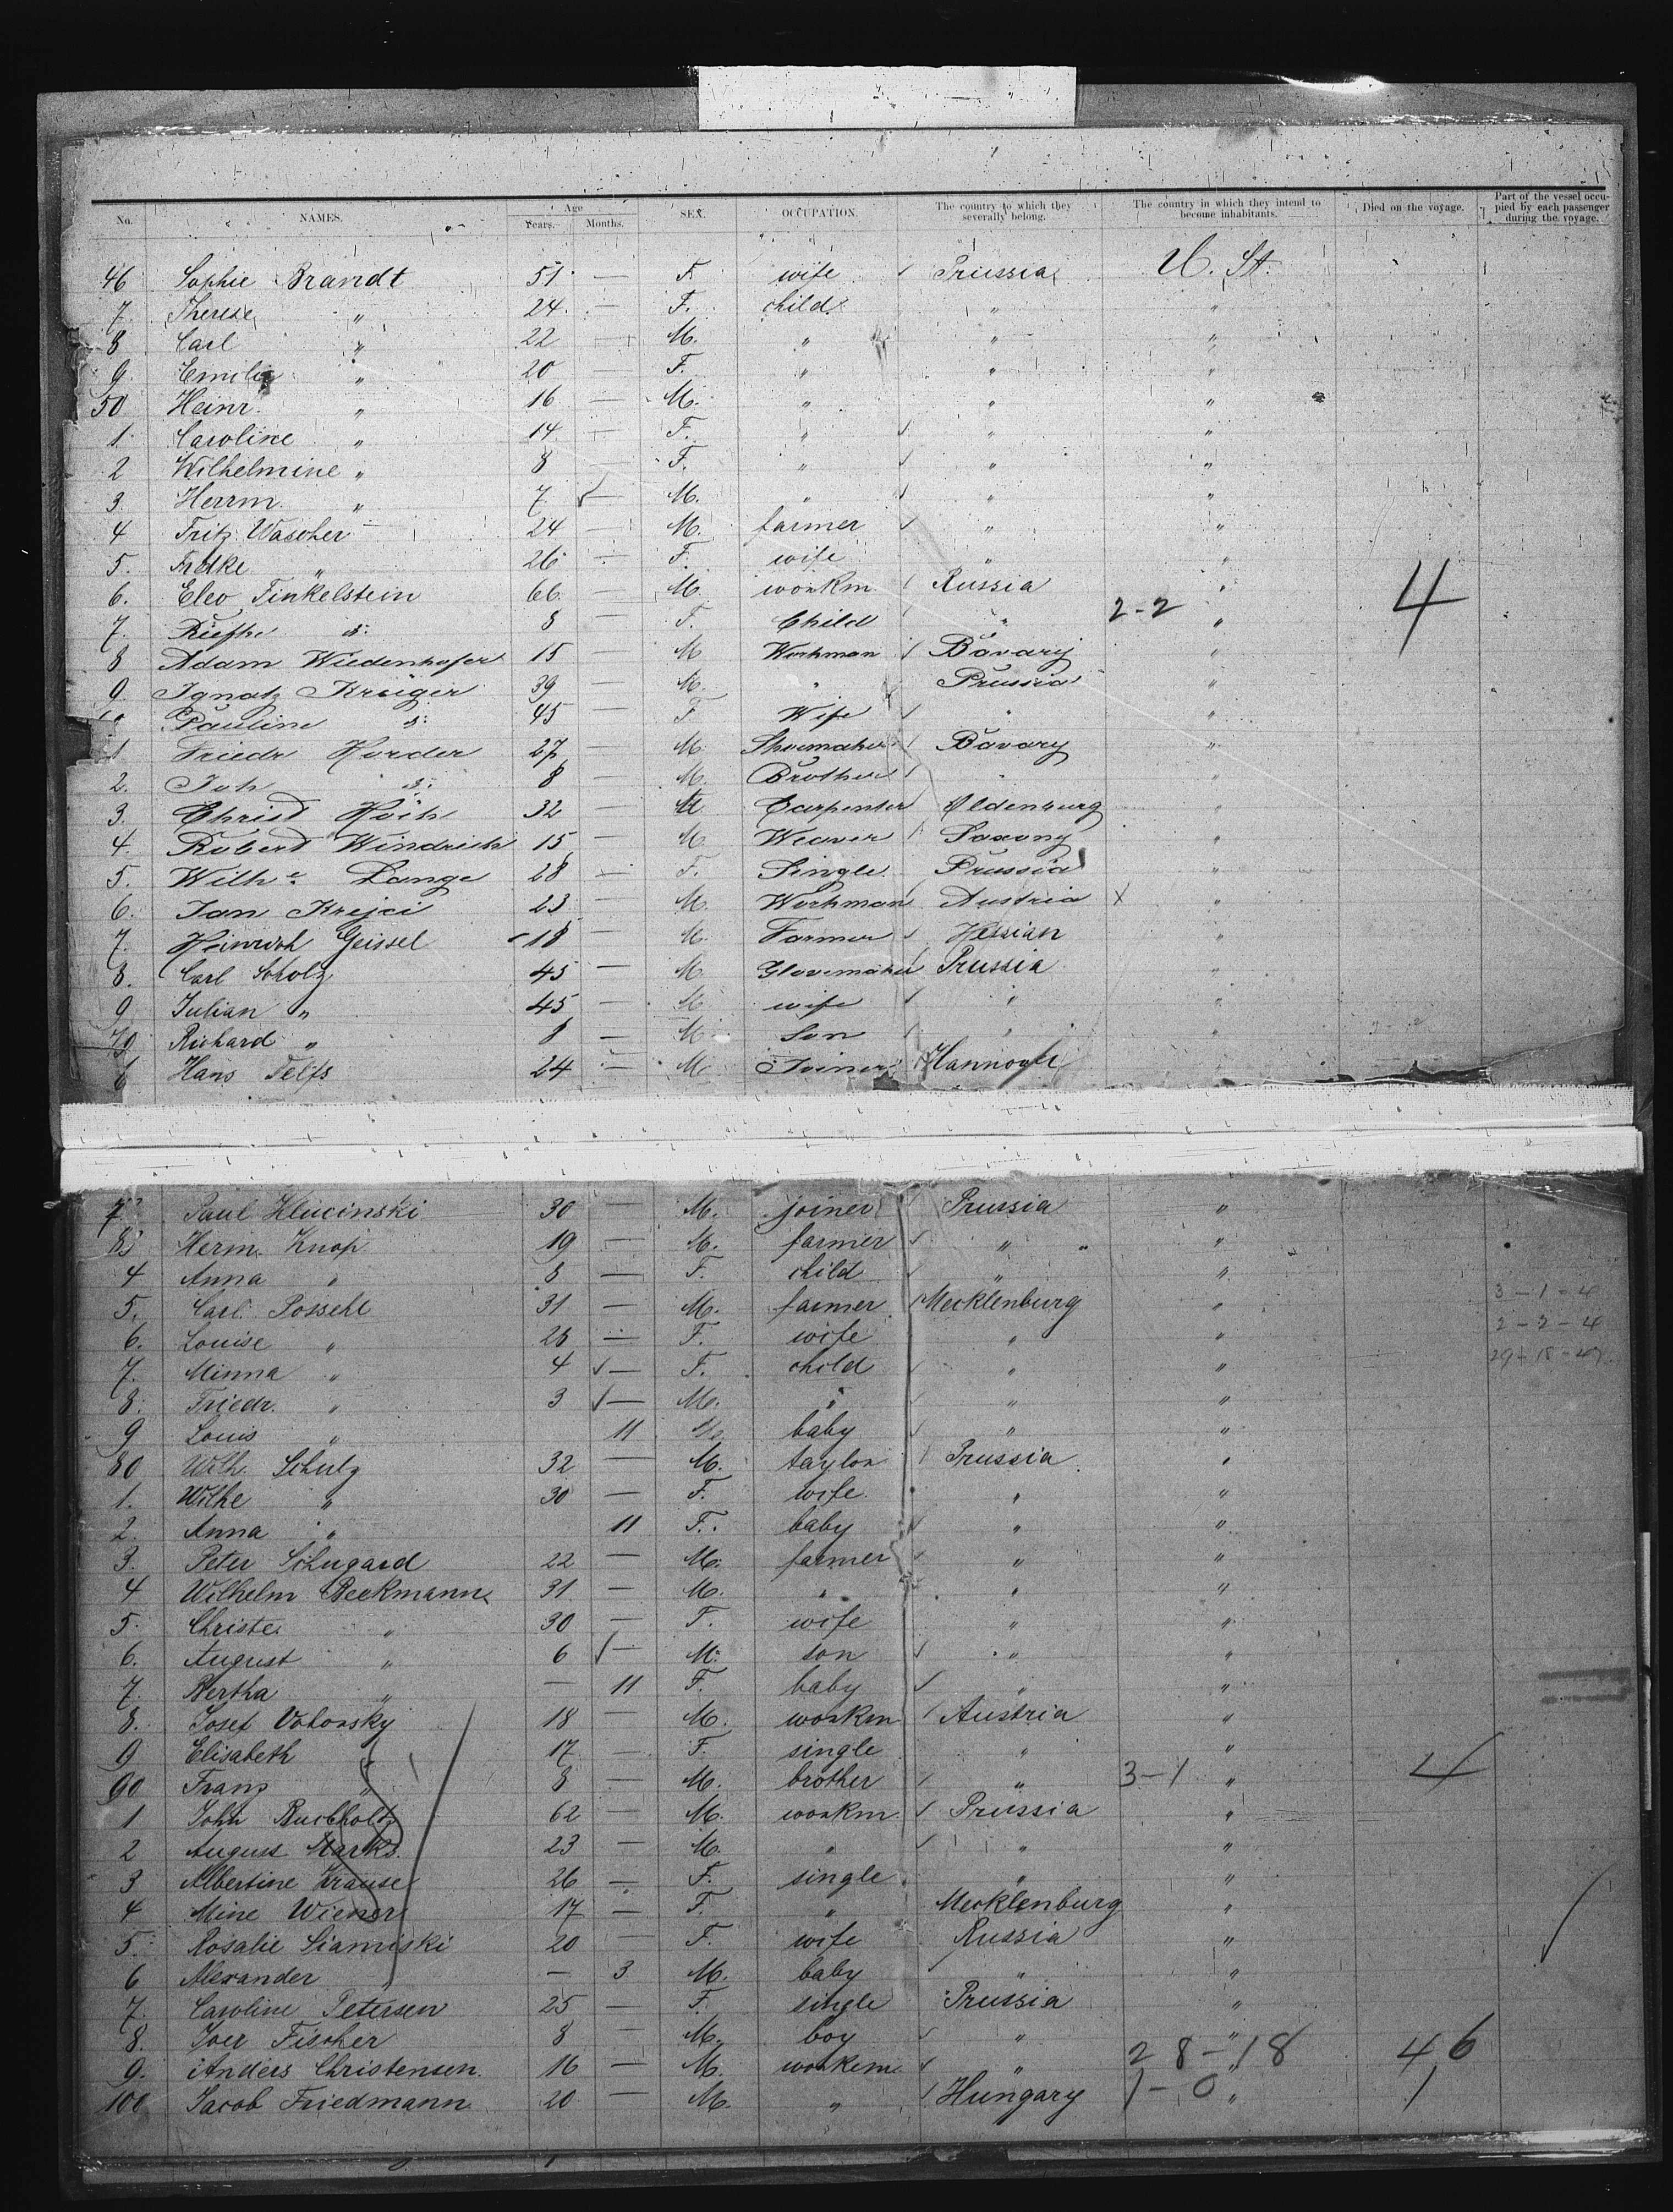 No. NAMES. Age Years. Months. SEX. OCCUPATION. The country to which they severally belong. The country in which they intend to become inhabitants. Died on the voyage. Part of the vessel occupied by each passenger during the voyage.
46 Sophie Brandt 51 — F. wife Prussia U. St.
7. Therese " 24 — F. child " "
8 Carl " 22 — M. " " "
9. Emilie " 20 — F. " " "
50 Heinr. " 16 — M. " " "
1. Caroline " 14 — F. " " "
2 Wilhelmine " 8 — F. " " "
3. Herrm. " 7 — M. " " "
4 Fritz Wascher 24 — M. farmer " "
5. " 26 — F. wife " "
6. Eleo Finkelstein 66 — M. workm Russia "
7. d: 8 — F. Child " 2-2 " 4
8 Adam Wiedenhofer 15 — M Workman Bavary "
9. Ignatz Kroiger 39 — M. " Prussia "
Pauline d: 45 — F Wife " "
1 Friedr Horder 27 — M. Shoemaker Bavary "
2. Joh d: 8 — M. Brother " "
3. Christ 32 — M Carpenter Oldenburg "
4. Robert Windrich 15 — M Weaver Saxony "
5. Wilhe Lange 28 — F. Single Prussia "
6. Jan Krejci 23 — M. Workman Austria X "
7. Heinrich Geissel 18 — M. Farmer Hessian "
8. Carl Scholz 45 — M. Glovemaker Prussia "
9 Julian " 45 — M wife " "
70 Richard " 8 — M. Son " "
Hans Telfs 24 — M. Joiner Hannover
Paul Hlucinski 30 — M. joiner Prussia "
Herm. Knop 19 — M. farmer " "
4 Anna " 8 — F. child " "
5. Carl Possehl 31 — M. farmer Mecklenburg " 3-1-4
6. Louise " 28 — F. wife " " 2-2-4
7. Minna " 4 — F. child " "
8. Friedr. " 3 — M. " " "
9 Louis " 11 baby " "
80 Wilh. Schulz 32 — M. taylor Prussia "
1. Wilhe " 30 — F. wife " "
2. Anna " 11 F. baby " "
3. Peter Schugard 22 — M. farmer " "
4 Wilhelm Beekmann 31 — M. " " "
5. Christe " 30 — F. wife " "
6. August " 6 — M. son " "
7. Bertha " — 11 F. baby " "
8. Josef Voborsky 18 — M. workm Austria "
9 Elisabeth " 17 — F. single " "
90 Franz " 8 — M. brother " 3-1 " 4
1 John Buchholtz 62 — M. workm. Prussia "
2 August Marks. 23 — M. " " "
3 Albertine Krause 26 — F. single " "
4 Mine Wiener 17 — F. " Mecklenburg "
5. Rosalie Siamiski 20 — F. wife Russia "
6 Alexander " — 3 M. baby " "
7. Caroline Petersen 25 — F. single Prussia "
8. Fischer 8 — M. boy " "
9. Anders Christensen. 16 — M. workem " 28-18 " 46
100 Jacob Friedmann 20 — M. " Hungary 1-0 " 1